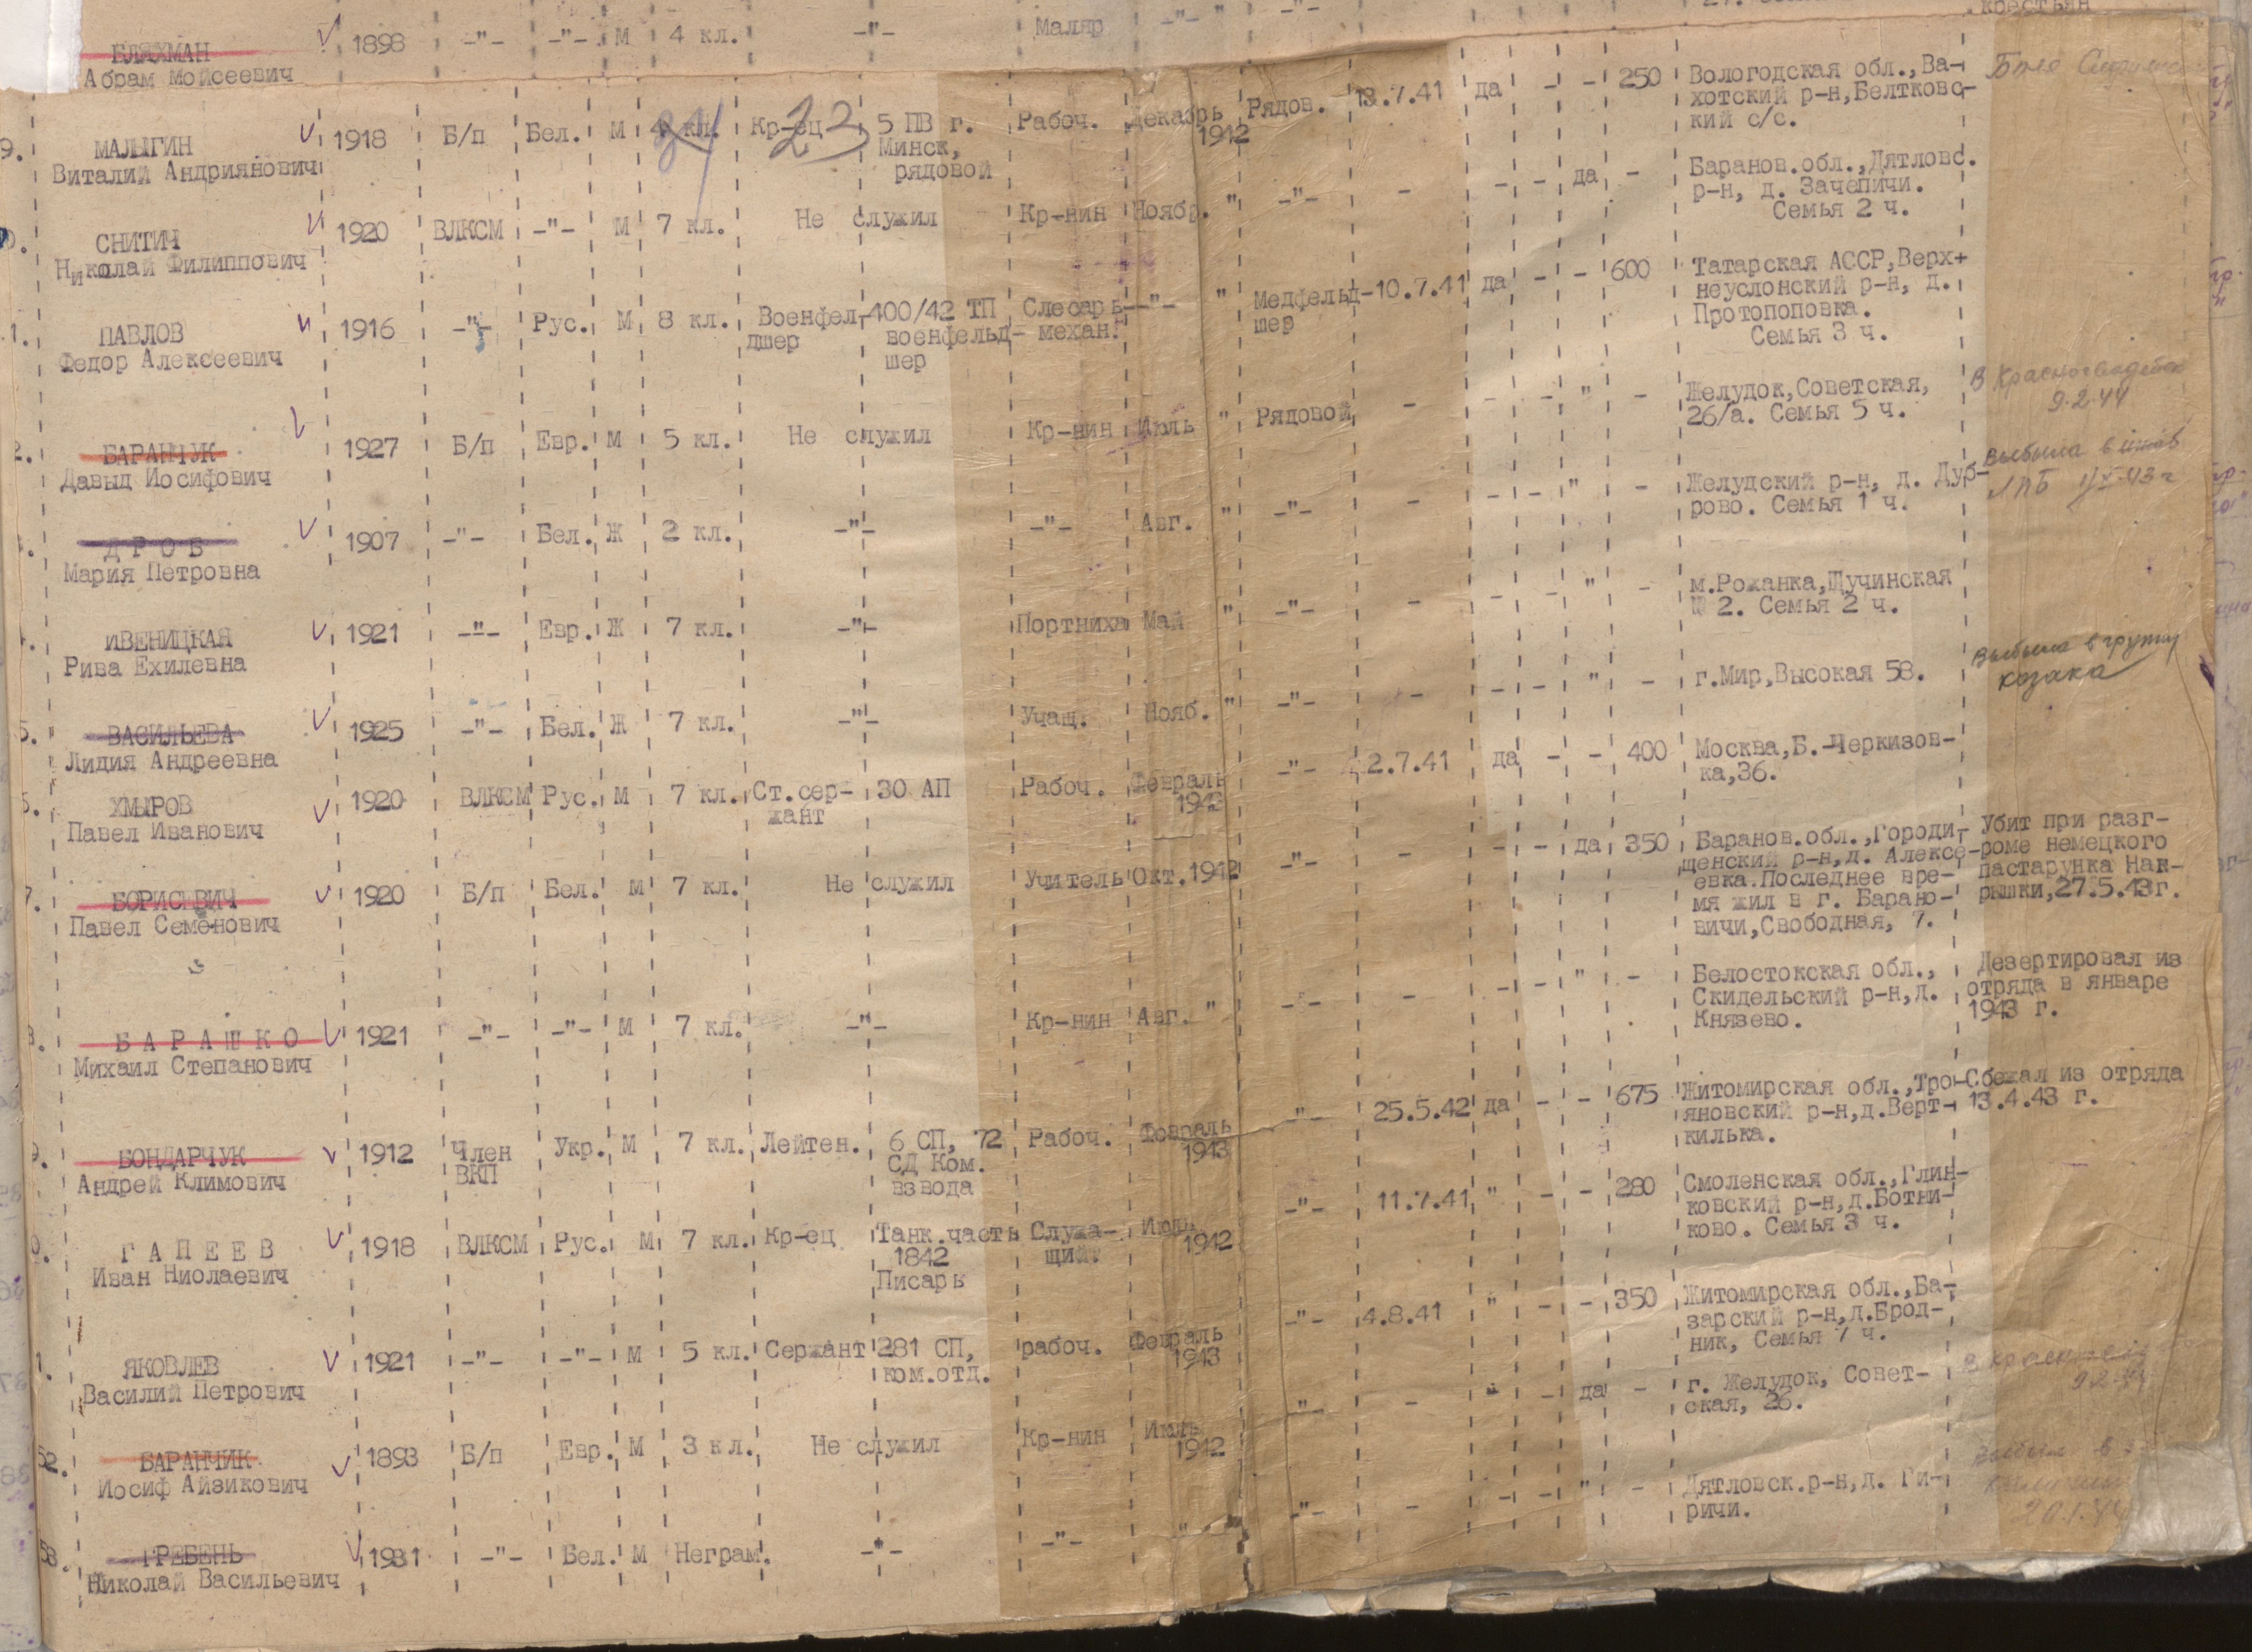 крестьян
БЛЯХМАН 1898 -"- -"- М 4 кл. -"- Маляр -"- " -"-
Абрам Мойсеевич
9. МАЛЫГИН 1918 Б/п Бел. М 4 кл. Кр-ец 23 5 ПВ г. Рабоч. декабрь Рядов. 13.7.41 да - - 250 Вологодская обл.,Ва-
Виталий Андриянович Минск, 1942 хотский р-н,Белтковс-
рядовой кий с/с.
0. СНИТИЧ 1920 ВЛКСМ -"- М 7 кл. Не служил Кр-нин Ноябр. " -"- - - - да - Баранов.обл.,Дятловс.
Николай Филиппович р-н, д. Зачепичи.
Семья 2 ч.
1. ПАВЛОВ 1916 -"- Рус. М 8 кл. Военфел- 400/42 ТП Слесарь- -"- " Медфельд- 10.7.41 да - - 600 Татарская АССР,Верх-
Федор Алексеевич дшер военфельд- механ. шер неуслонский р-н, д.
шер Протопоповка.
Семья 3 ч.
2. БАРАНЧУК 1927 Б/п Евр. М 5 кл. Не служил Кр-нин Июль " Рядовой - - - " - Желудок,Советская, В Красногвадейск
Давыд Иосифович 26/а. Семья 5 ч. 9.2.44
. ДРОБ 1907 -"- Бел. Ж 2 кл. -"- -"- Авг. " -"- - - - " - Желудский р-н, д. Дуб- Выбыла в штаб
Мария Петровна рово. Семья 1 ч. ЛПБ
. ИВЕНИЦКАЯ 1921 -"- Евр. Ж 7 кл. -"- Портниха Май " -"- - - - " - м.Рожанка,Щучинская
Рива Ехилевна № 2. Семья 2 ч.
5. ВАСИЛЬЕВА 1925 -"- Бел. Ж 7 кл. -"- Учащ. Нояб. " -"- - - - " - г.Мир,Высокая 58. Выбыла в групу
Лидия Андреевна козака
6. ХМЫРОВ 1920 ВЛКСМ Рус. М 7 кл. Ст.сер- 30 АП Рабоч. Февраль -"- 2.7.41 да - - 400 Москва,Б.-Черкизов-
Павел Иванович жант 1943 ка,36.
7. БОРИСЕВИЧ 1920 Б/п Бел. М 7 кл. Не служил Учитель Окт.1942 -"- - - - да 350 Баранов.обл.,Городи- Убит при разг-
Павел Семенович щенский р-н,д. Алексе- роме немецкого
евка.Последнее вре- пастарунка Нак-
мя жил в г. Барано- рышки,27.5.43г.
вичи,Свободная, 7.
8. БАРАШКО 1921 -"- -"- М 7 кл. -"- Кр-нин Авг. " -"- - - - " - Белостокская обл., Дезертировал из
Михаил Степанович Скидельский р-н,д. отряда в январе
Князево. 1943 г.
9. БОНДАРЧУК 1912 Член Укр. М 7 кл. Лейтен. 6 СП, 72 Рабоч. Февраль -"- 25.5.42 да - - 675 Житомирская обл.,Тро- Сбежал из отряда
Андрей Климович ВКП СД Ком. 1943 яновский р-н,д.Верт- 13.4.43 г.
взвода килька.
0. ГАПЕЕВ 1918 ВЛКСМ Рус. М 7 кл. Кр-ец Танк.часть Служа- Июль -"- 11.7.41 " - - 280 Смоленская обл.,Глин-
Иван Ниолаевич 1842 щий. 1942 ковский р-н,д.Ботви-
Писарь ково. Семья 3 ч.
1. ЯКОВЛЕВ 1921 -"- -"- М 5 кл. Сержант 281 СП, рабоч. Февраль -"- 4.8.41 " - - 350 Житомирская обл.,Ба-
Василий Петрович ком.отд. 1943 зарский р-н,д.Брод-
ник, Семья 7 ч.
52. БАРАНЧИК 1893 Б/п Евр. М 3 кл. Не служил Кр-нин Июль -"- - " - да - г. Желудок, Совет-
Иосиф Айзикович 1942 ская, 26. 9.2.44
53. ГРЕБЕНЬ 1931 -"- Бел. М Неграм. -"- -"- " -"- - - - " - Дятловск.р-н,д. Ги-
Николай Васильевич ричи. 20.1.44